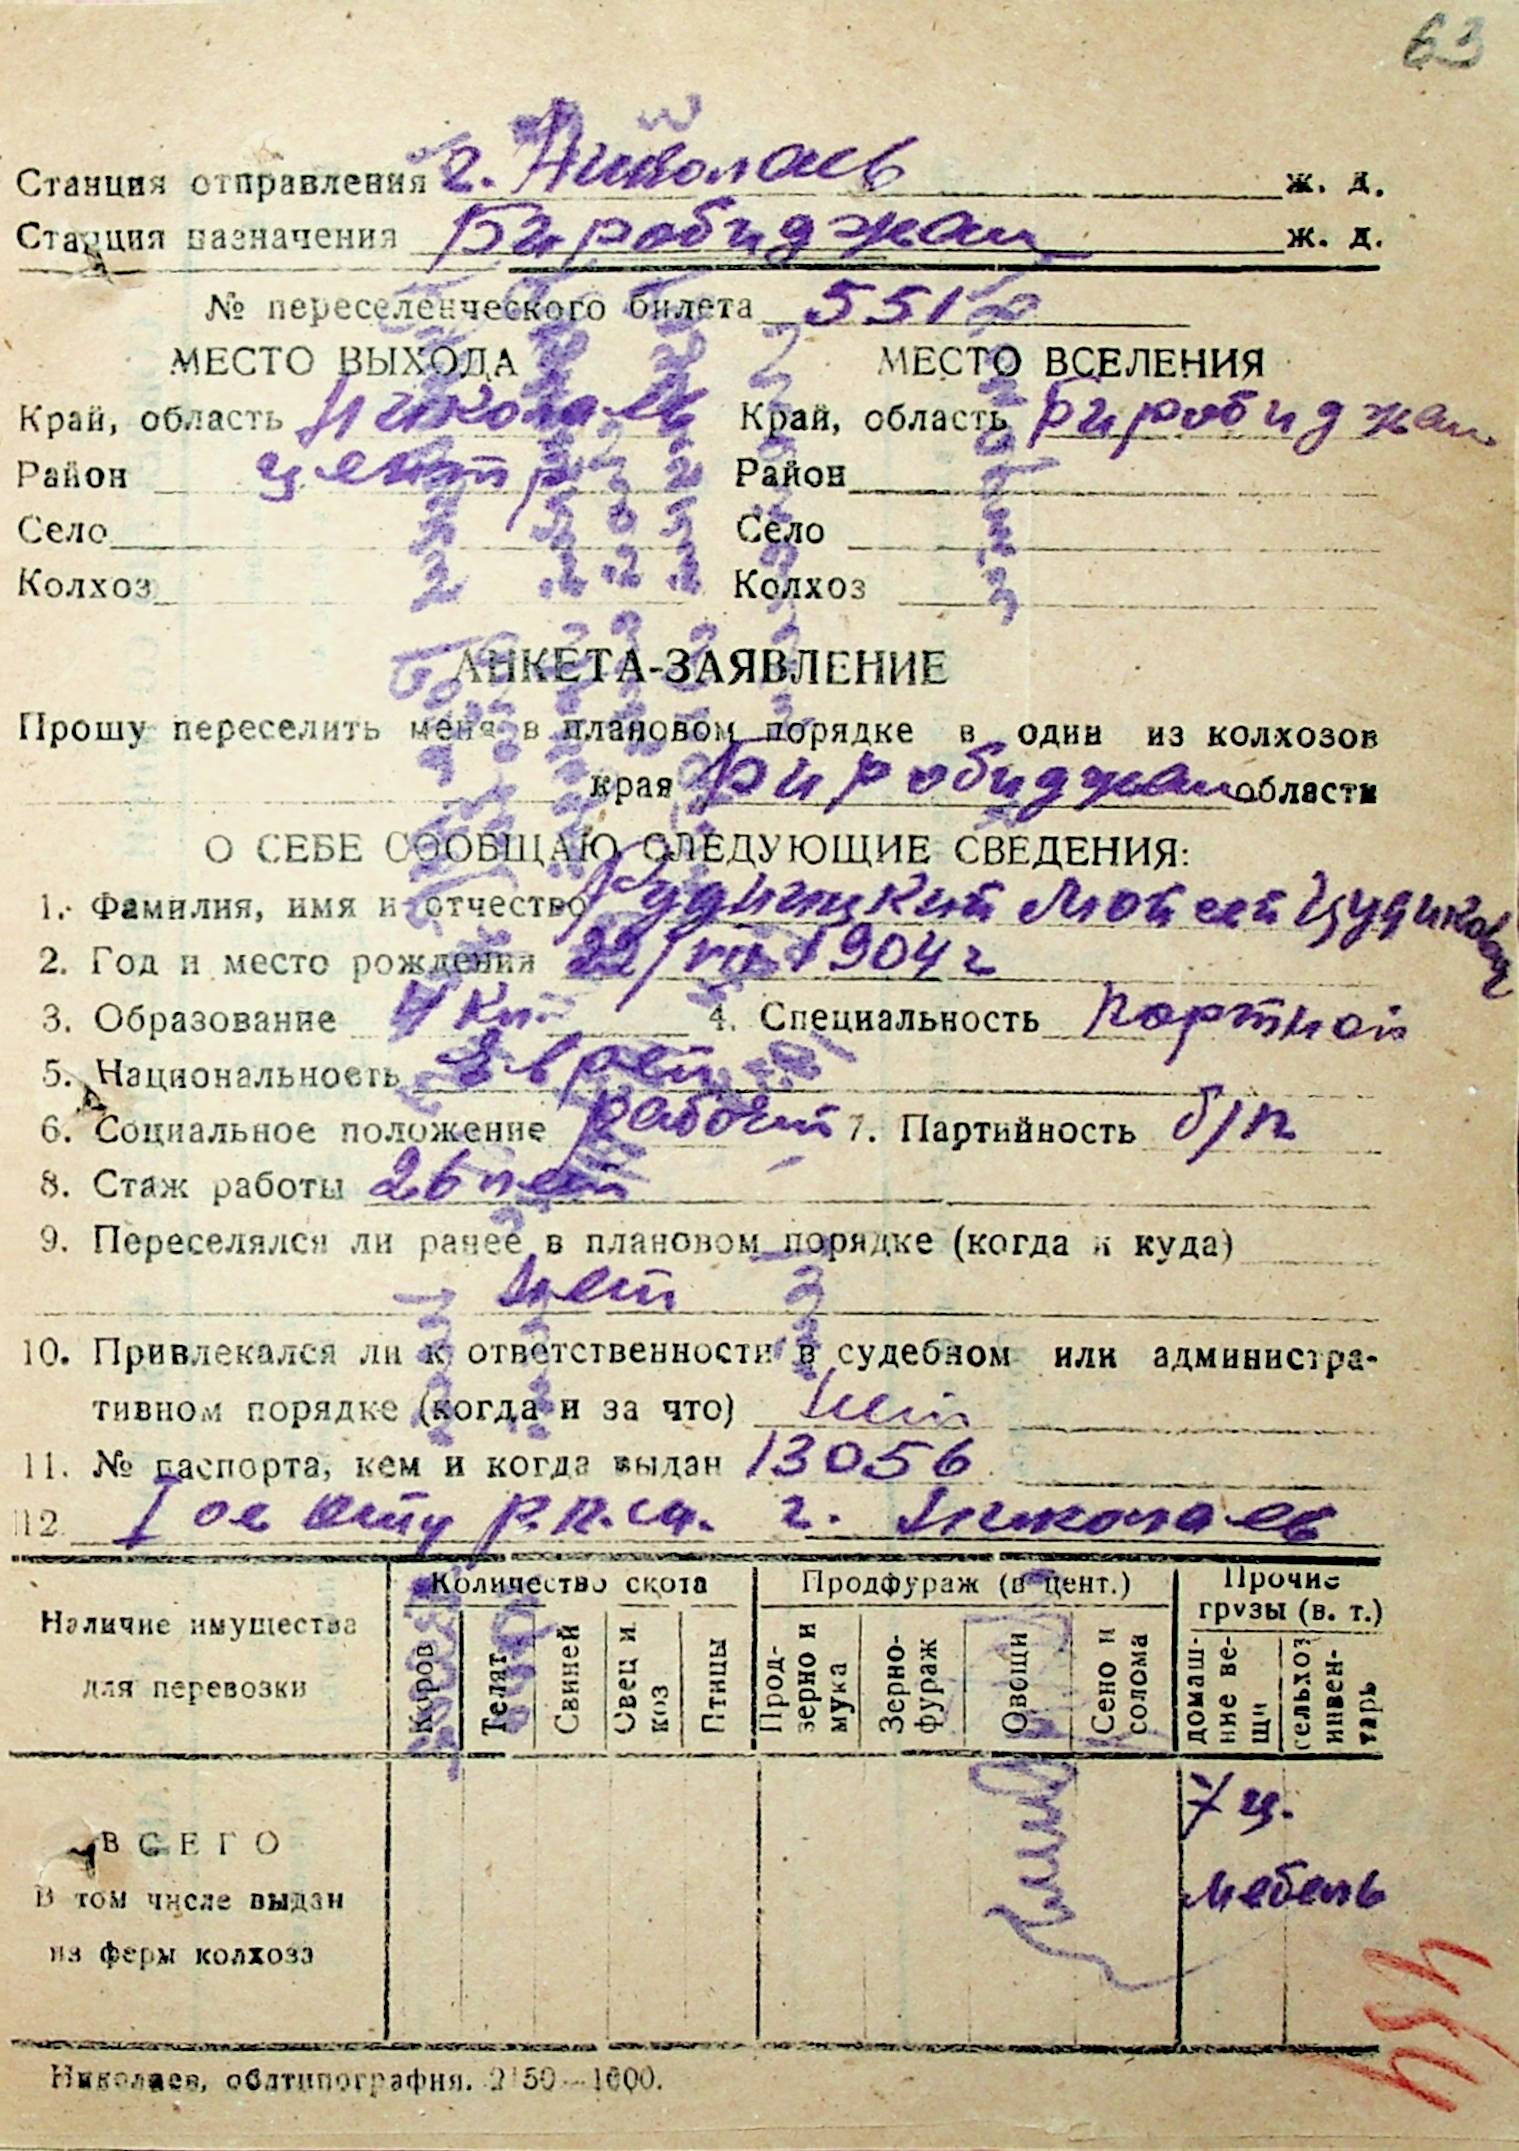 63
Станция отправления г. Николаев ж. д.
Станция назначения Биробиджан ж. д.
№ переселенческого билета 551
МЕСТО ВЫХОДА МЕСТО ВСЕЛЕНИЯ
Край, область Николаев Край, область Биробиджан
Район центр Район
Село Село
Колхоз Колхоз
АНКЕТА-ЗАЯВЛЕНИЕ
Прошу переселить меня в плановом порядке в один из колхозов
края Биробиджан области
О СЕБЕ СООБЩАЮ СЛЕДУЮЩИЕ СВЕДЕНИЯ:
1. Фамилия, имя и отчество
2. Год и место рождения 22/VII 1904 г
3. Образование 4 кл. 4. Специальность портной
5. Национальность Еврей
6. Социальное положение рабочий 7. Партийность б/п
8. Стаж работы 26 лет
9. Переселялся ли ранее в плановом порядке (когда и куда)
нет
10. Привлекался ли к ответственности в судебном или администра-
тивном порядке (когда и за что) нет
11. № паспорта, кем и когда выдан 13056
12. I ое г. Николаев
Наличие имущества для перевозки
Количество скота
Продфураж (в цент.)
Прочие грузы (в. т.)
Коров
Телят
Свиней
Овец и коз
Птицы
Прод-зерно и мука
Зерно-фураж
Овощи
Сено и солома
домаш-ние ве-щи
сельхоз инвен-тарь
ВСЕГО 7 ц.
В том числе выдан мебель
из ферм колхоза
454
Николаев, облтипография. 2150—1600.